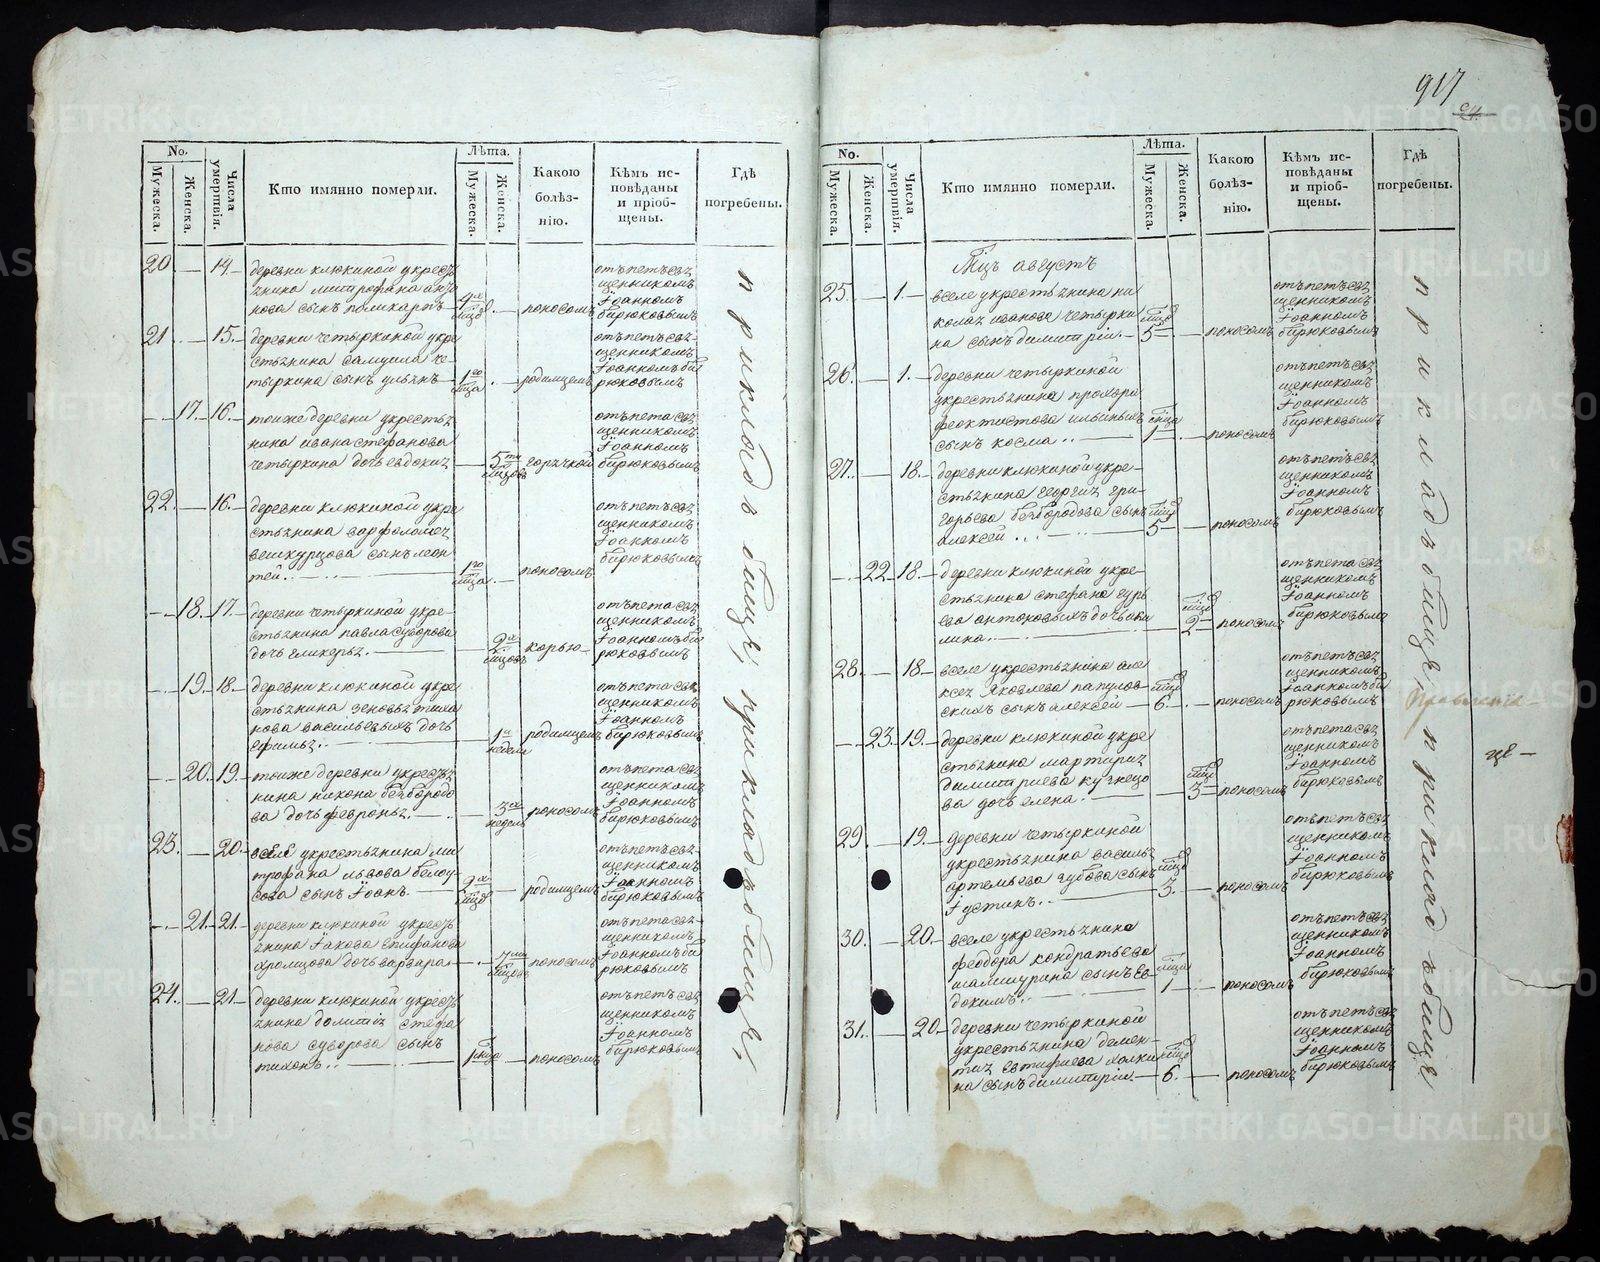 917
24.
No.
Мужеска.
Женска.
Числа умертвія.
Кто имянно померли.
Лѣта.
Мужеска.
Женска.
Какою болѣз-
нію.
Кѣмъ ис-
повѣданы
и пріоб-
щены.
Гдѣ
погребены.
20 — 14. деревни клюкиной
нова сынъ поликарпъ поносомъ
отъпетъ свя
щенникомъ
Іоанномъ
бирюковымъ
21. — 15. деревни четыркиной укре
стьянина самуила че-
тыркина сынъ ульянъ родимцемъ
отъпетъ свя-
щенникомъ
Іоанномъ би
рюковымъ
— 17. 16. тоиже деревни укрестья
нина ивана стефанова
четыркина дочь евдокия горячкой
отъпета свя
щенникомъ
Іоанномъ
бирюковымъ
22. — 16. деревни клюкиной укре
стьянина варфоломея
сынъ леон
тей. поносомъ
отъпетъ свя
щенникомъ
Іоанномъ
бирюковымъ
— 18. 17. деревни четыркиной укре-
стьянина павла суворова
дочь гликерья. корью
отъпета свя
щенникомъ
Іоанномъ би
рюковымъ
— 19. 18. деревни клюкиной укре
стьянина зеновья тиха
нова васильевыхъ дочь
родимцемъ
отъпета свя
щенникомъ
Іоанномъ
бирюковымъ
— 20. 19. тоиже деревни
нина никона безбородо
ва дочь февронья. поносомъ
отъпета свя
щенникомъ
Іоанномъ
бирюковымъ
23. — 20. вселе укрестьянина ми
трофана львова белоу
сова сынъ Іоанъ. родимцемъ
отъпетъ свя-
щенникомъ
Іоанномъ
бирюковымъ
— 21. 21. деревни клюкиной
янина Іакова епифанова
хромцова дочь варвара поносомъ
отъпета свя
щенникомъ
Іоанномъ би
рюковымъ
24. — 21. деревни клюкиной
стефа
нова суворова сынъ
тихонъ. поносомъ
отъпетъ свя
щенникомъ
Іоанномъ
бирюковымъ
прикладъбище, прикладъбище,
No.
Мужеска.
Женска.
Числа умертвія.
Кто имянно померли.
Лѣта.
Мужеска.
Женска.
Какою
болѣз-
нію.
Кѣмъ ис-
повѣданы
и пріоб-
щены.
Гдѣ
погребены.
Мцъ августъ
25. — 1. вселе укрестьянина ни
колая иванова четырки
на сынъ димитріи 5 поносомъ
отъпетъ свя
щенникомъ
Іоанномъ
бирюковымъ
26. — 1. деревни четыркиной
укрестьянина прохора
феоктистова ильиныхъ
сынъ косма 1 поносомъ
отъпетъ свя
щенникомъ
Іоанномъ
бирюковымъ
27. — 18. деревни клюкиной укре-
стьянина георгия гри-
горьева безбородова сынъ
алексей 5 поносомъ
отъпетъ свя
щенникомъ
Іоанномъ
бирюковымъ
— 22. 18. деревни клюкиной укре-
стьянина стефана гурь
ева антоновыхъ дочь
лина. 2 поносомъ
отъпета свя
щенникомъ
Іоанномъ
бирюковымъ
28. — 18. вселе укрестьянина але
ксея Яковлева папулов-
скихъ сынъ алексей 6. поносомъ
отъпетъ свя
щенникомъ
Іоанномъ би
рюковымъ
— 23. 19. деревни клюкиной укре
стьянина мартирия
димитриева кузнецо
ва дочь елена. 3 поносомъ
отъпета свя
щенникомъ
Іоанномъ
бирюковымъ
29. — 19. деревни четыркиной
укрестьянина василья
артемьева зубова сынъ
Іустинъ. 3. поносомъ
отъпетъ свя
щенникомъ
Іоанномъ
бирюковымъ
30. — 20. вселе укрестьянина
феодора кондратьева
шамшурина сынъ ев-
докимъ. 1 поносомъ
отъпетъ свя
щенникомъ
Іоанномъ
бирюковымъ
31. — 20. деревни четыркиной
укрестьянина демен-
тия евтифиева
на сынъ димитріи 6. поносомъ
отъпетъ свя
щенникомъ
Іоанномъ
бирюковымъ
прикладъбище, прикладъбище
METRIKI.GASO-URAL.RU